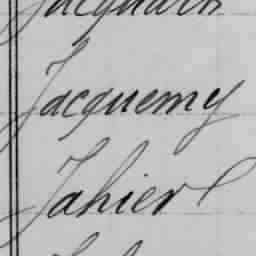 Jacquemy
Jahier